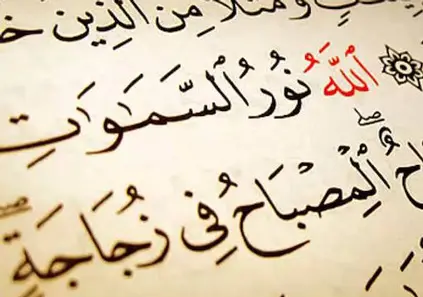 وَمَثَلًا مِّنَ ٱلَّذِينَ
ٱللَّهُ نُورُ ٱلسَّمَٰوَٰتِ
ٱلْمِصْبَاحُ فِى زُجَاجَةٍ